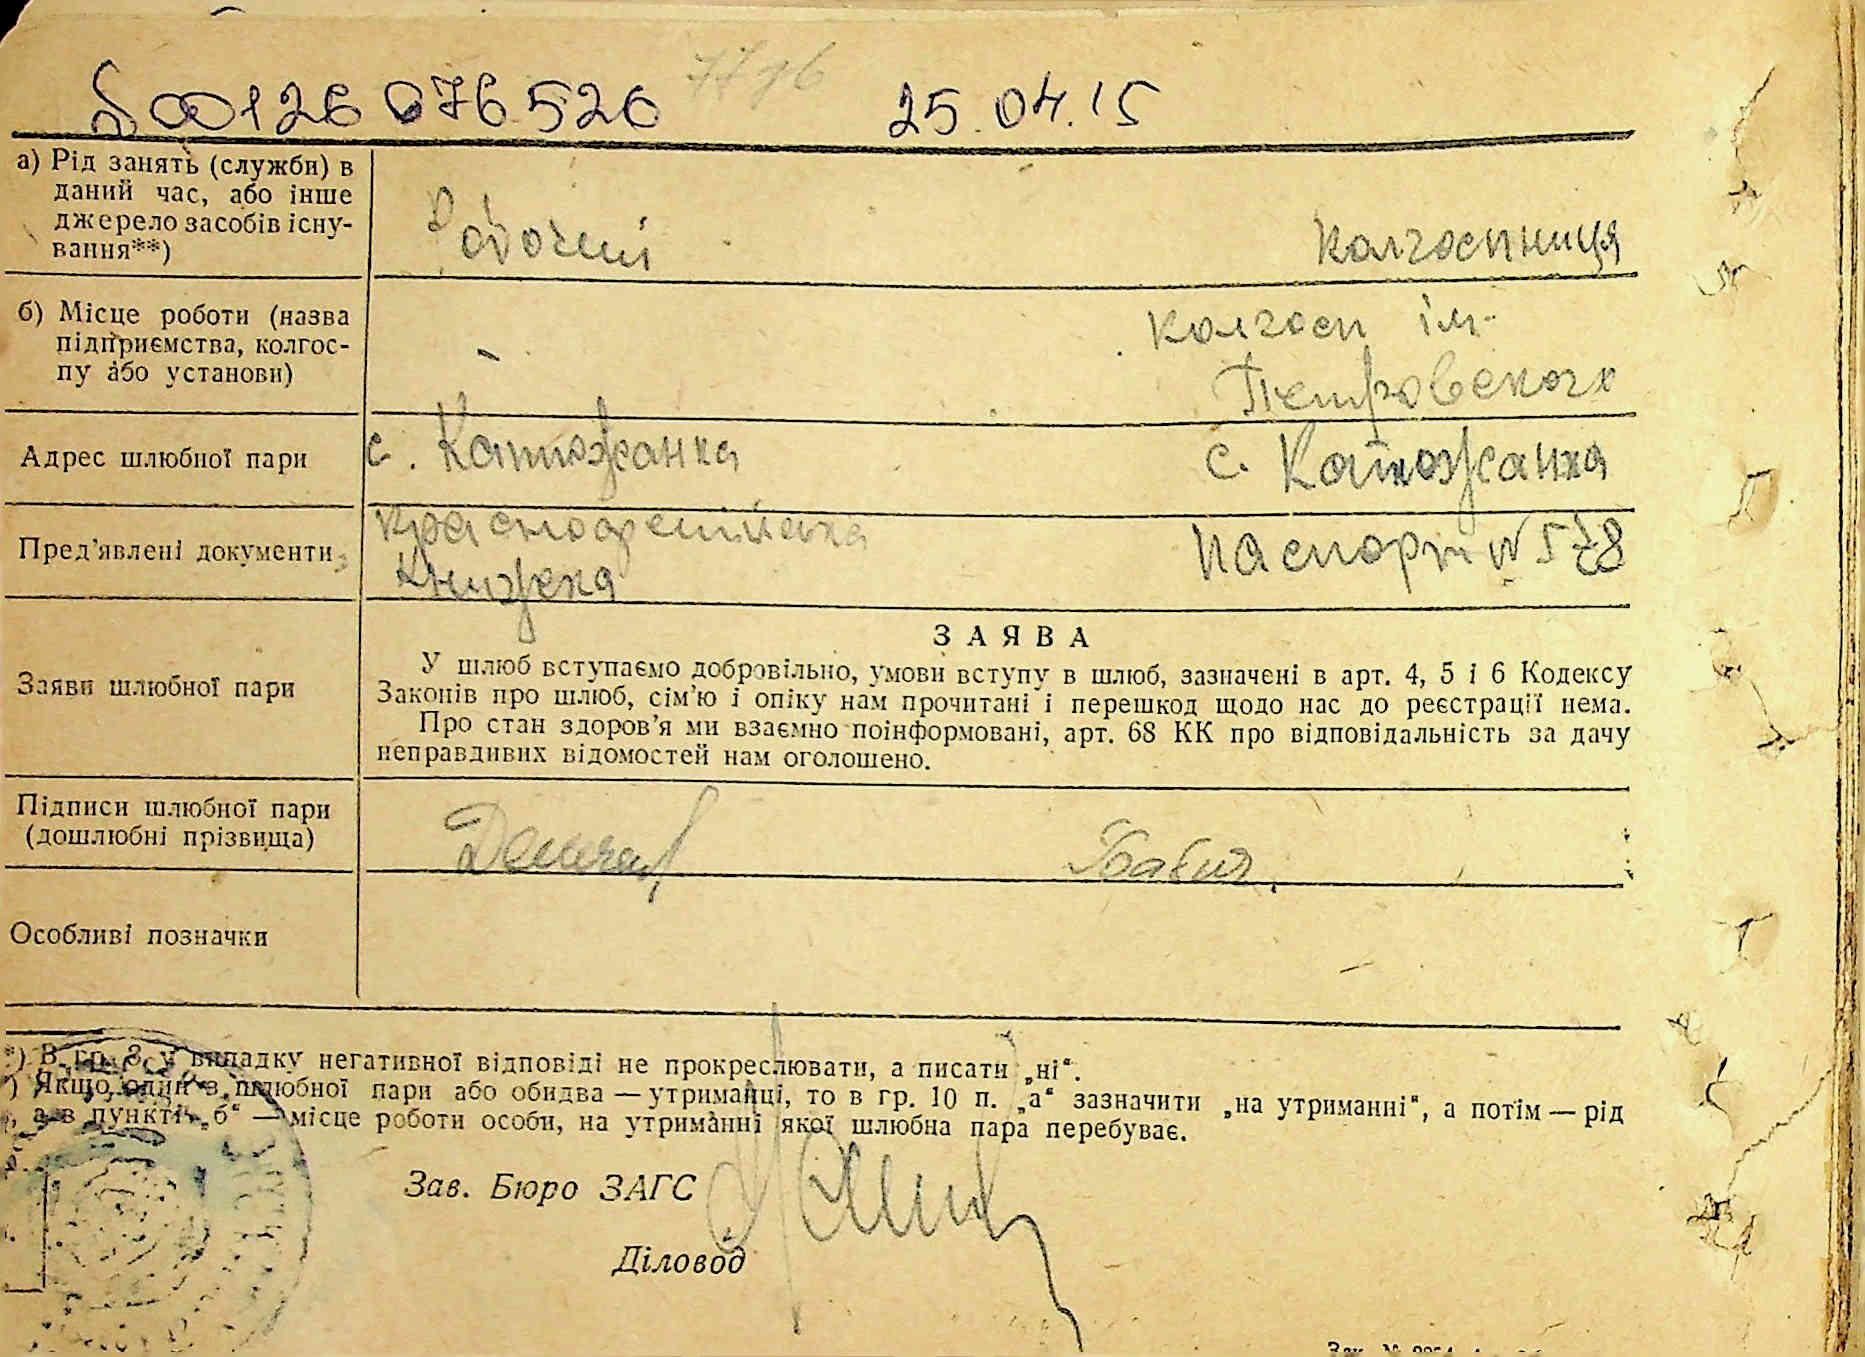 00126 076520 25.04.15
а) Рід занять (службии) в
даний час, або інше
джерело засобів існу-
вання**)
Робочий
колгоспниця
б) Місце роботи (назва
підприємства, колгос-
пу або установи)
-
колгосп ім.
Петровського
Адрес шлюбної пари
с. Катюжанка
с. Катюжанка
Пред'явлені документи
красноармійська
книжка
паспорт № 578
Заяви шлюбної пари
ЗАЯВА
У шлюб вступаємо добровільно, умови вступу в шлюб, зазначені в арт. 4, 5 і 6 Кодексу
Законів про шлюб, сім'ю і опіку нам прочитані і перешкод щодо нас до реєстрації нема.
Про стан здоров'я ми взаємно поінформовані, арт. 68 КК про відповідальність за дачу
неправдивих відомостей нам оголошено.
Підписи шлюбної пари
(дошлюбні прізвища)
Бабич
Особливі позначки
*) В гр. 8 у випадку негативної відповіді не прокреслювати, а писати „ні“.
) Якщо один з шлюбної пари або обидва — утриманці, то в гр. 10 п. „а“ зазначити „на утриманні“, а потім — рід
а в пункті „б“ — місце роботи особи, на утриманні якої шлюбна пара перебуває.
Зав. Бюро ЗАГС
Діловод